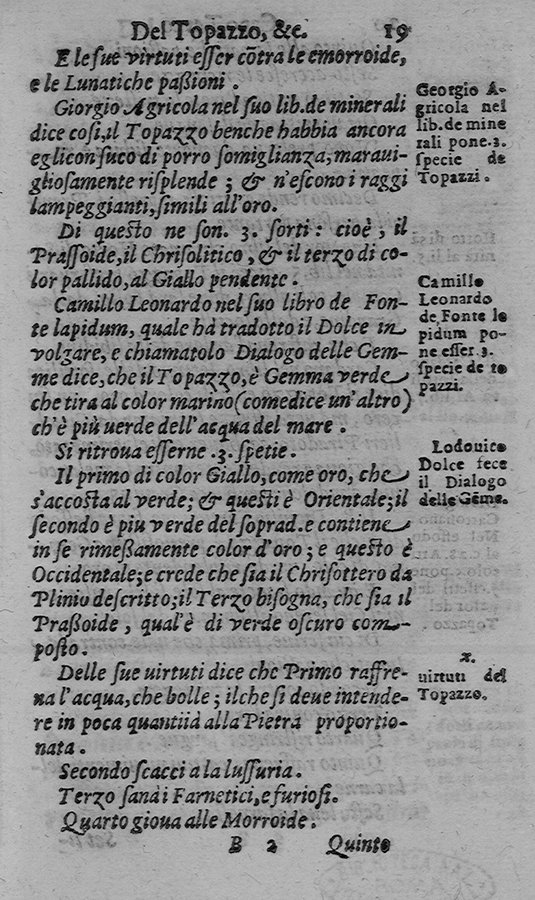 Del Topazzo, &c. 19
E le sue virtuti esser cõtra le emorroide,
e le Lunatiche paßioni .
Giorgio Agricola nel suo lib. de minerali
dice così, il Topazzo benche habbia ancora
egli con suco di porro somiglianza, maraui-
gliosamente risplende ; & n'escono i raggi
lampeggianti, simili all'oro.
Di questo ne son. 3. sorti : cioè , il
Prassoide, il Chrisolitico , & il terzo di co-
lor pallido, al Giallo pendente .
Camillo Leonardo nel suo libro de Fon-
te lapidum, quale hà tradotto il Dolce in
volgare, e chiamatolo Dialogo delle Gem-
me dice, che il Topazzo, è Gemma verde
che tira al color marino (come dice un'altro)
ch'è più uerde dell'acqua del mare .
Si ritroua esserne .3. spetie.
Il primo di color Giallo, come oro, che
s'accosta al verde; & questi è Orientale; il
secondo è piu verde del soprad. e contiene
in se rimeßamente color d'oro ; e questo è
Occidentale; e crede che sia il Chrisottero da
Plinio descritto; il Terzo bisogna, che sia il
Praßoide , qual'è di verde oscuro com-
posto.
Delle sue uirtuti dice che Primo raffre-
na l'acqua, che bolle ; ilche si deue intende-
re in poca quantiià alla Pietra proportio-
nata .
Secondo scacci a la lussuria .
Terzo sana i Farnetici, e furiosi.
Quarto gioua alle Morroide .
B 2 Quinto
Georgio A-
gricola nel
lib. de mine
rali pone .3.
specie de
Topazzi .
Camillo
Leonardo
de Fonte la
pidum po-
ne esser .3.
specie de to
pazzi.
Lodouico
Dolce fece
il Dialogo
delle Gẽme.
x.
uirtuti del
Topazzo.